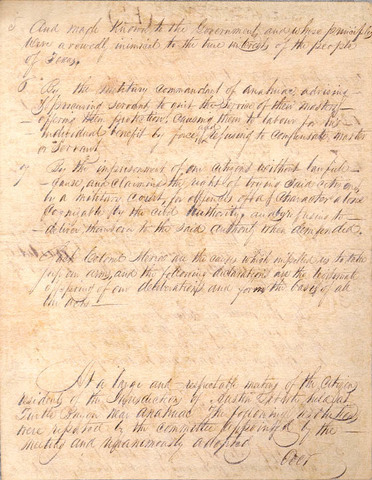 5 And made known to the Government and whose principles
were avowedly inimical to the true interests of the people
of Texas,
6 By the military commandant of Anahuac advising
& procuring Servants to quit the Service of their masters
offering them protection, Causing them to labour for his
Individual benefit by force, and refusing to Compensate master
or Servant
7 By the imprisonment of our citizens without lawful
Cause and claiming the right of trying Said citizens
by a military Court, for offences of a Character alone
Cognizable by the Civil Authority and by refusing to
deliver them over to the Said authority when demanded.
are the causes which impelled us to take
up our arms, and the following declarations are the legitimate
offspring of our deliberations and form the bases of all
our
At a large and respectable meeting of the citizens
residents of the Jurisdiction of Austin held at
Turtle Bayou near Anahuac The following
were reported by the committee appointed by the
meeting and unanimously adopted